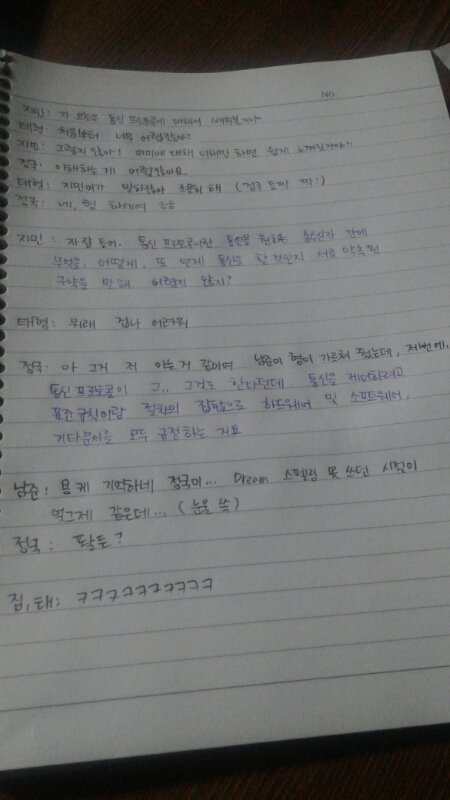 No.
지민: 자 오늘은 통신 프로토콜에 대해서 배워볼거야
태형: 처음부터 너무 어렵잖아?
지민: 그렇지 않아! 의미에 대해 이해만 하면 쉽게 느껴질거야!!
정국: 이해하는게 어렵잖아요
태형: 지민이가 말하잖아 조용히 해 (정국 등짝 찍!)
정국: 네, 형 하세여
지민: 자 잘 들어. 통신 프로토콜이란 통신을 원하는 송수신자 간에
무엇을, 어떻게, 또 언제 통신을 할 것인지 서로 약속된
규약을 말해 어렵지 않지?
태형: 뭐래 겁나 어려워
정국: 아 그거 저 아는거 같아여 남준이 형이 가르쳐 줬는데, 저번에,
통신 프로토콜이 그.. 그것도 한다던데 통신을 제어하려고
표준규칙이랑 절차의 집합으로 하드웨어 및 소프트웨어,
기타문서를 모두 규정하는 거요
남준: 용케 기억하네 정국이... Dream 스펠링 못 쓰던 시절이
엊그제 같은데... (눈물 쓱)
정국: 팔든?
짐, 태: ㅋㅋㅋㅋㅋㅋㅋㅋㅋㅋ